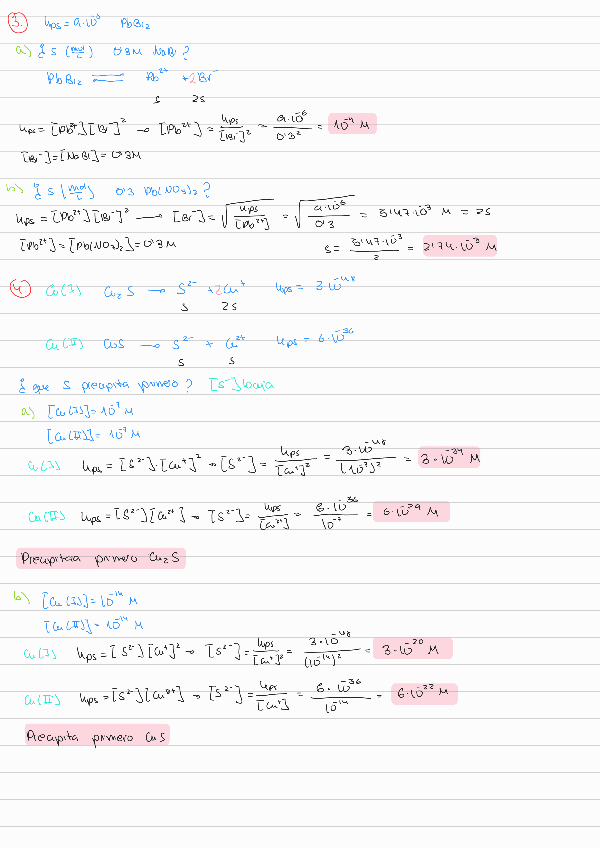 3. Kps = 9·10⁻⁶ PbBr₂
a) ¿ S (mol/L) 0'3M NaBr ?
PbBr₂ ⇌ Pb²⁺ + 2Br⁻
s 2s
Kps = [Pb²⁺][Br⁻]² → [Pb²⁺] = Kps/[Br⁻]² = 9·10⁻⁶/0'3² = 10⁻⁴ M
[Br⁻] = [NaBr] = 0'3M
b) ¿ S (mol/L) 0'3 Pb(NO₃)₂ ?
Kps = [Pb²⁺][Br⁻]² → [Br⁻] = √(Kps/[Pb²⁺]) = √(9·10⁻⁶/0'3) = 5'47·10⁻³ M = 2s
[Pb²⁺] = [Pb(NO₃)₂] = 0'3M
s = 5'47·10⁻³/2 = 2'74·10⁻³ M
4. Cu(I) Cu₂S → S²⁻ + 2Cu⁺ Kps = 3·10⁻⁴⁸
s 2s
Cu(II) CuS → S²⁻ + Cu²⁺ Kps = 6·10⁻³⁶
s s
¿ que S precipita primero ? [S⁻] baja
a) [Cu(I)] = 10⁻⁷ M
[Cu(II)] = 10⁻⁷ M
Cu(I) Kps = [S²⁻]·[Cu⁺]² → [S²⁻] = Kps/[Cu⁺]² = 3·10⁻⁴⁸/(10⁻⁷)² = 3·10⁻³⁴ M
Cu(II) Kps = [S²⁻][Cu²⁺] → [S²⁻] = Kps/[Cu²⁺] = 6·10⁻³⁶/10⁻⁷ = 6·10⁻²⁹ M
Precipitara primero Cu₂S
b) [Cu(I)] = 10⁻¹⁴ M
[Cu(II)] = 10⁻¹⁴ M
Cu(I) Kps = [S²⁻][Cu⁺]² → [S²⁻] = Kps/[Cu⁺]² = 3·10⁻⁴⁸/(10⁻¹⁴)² = 3·10⁻²⁰ M
Cu(II) Kps = [S²⁻][Cu²⁺] → [S²⁻] = Kps/[Cu⁺] = 6·10⁻³⁶/10⁻¹⁴ = 6·10⁻²² M
Precipita primero CuS